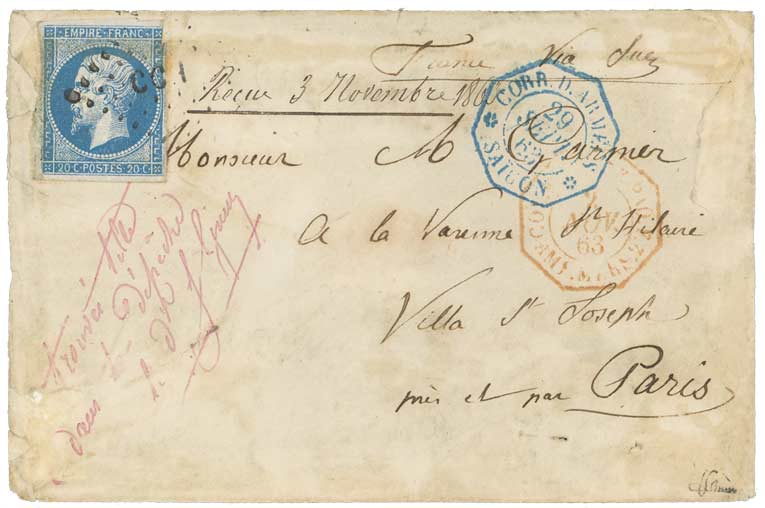 EMPIRE FRANC
20 C POSTES 20 C
France Via Suez
Reçue 3 Novembre 186
CORR. D. ARMÉES
29
SEPT.
63
SAIGON
Monsieur M Garnier
NOV.
63
A la Varenne St Hilaire
Villa St Joseph
près et par Paris
trouvée
dans la dépêche